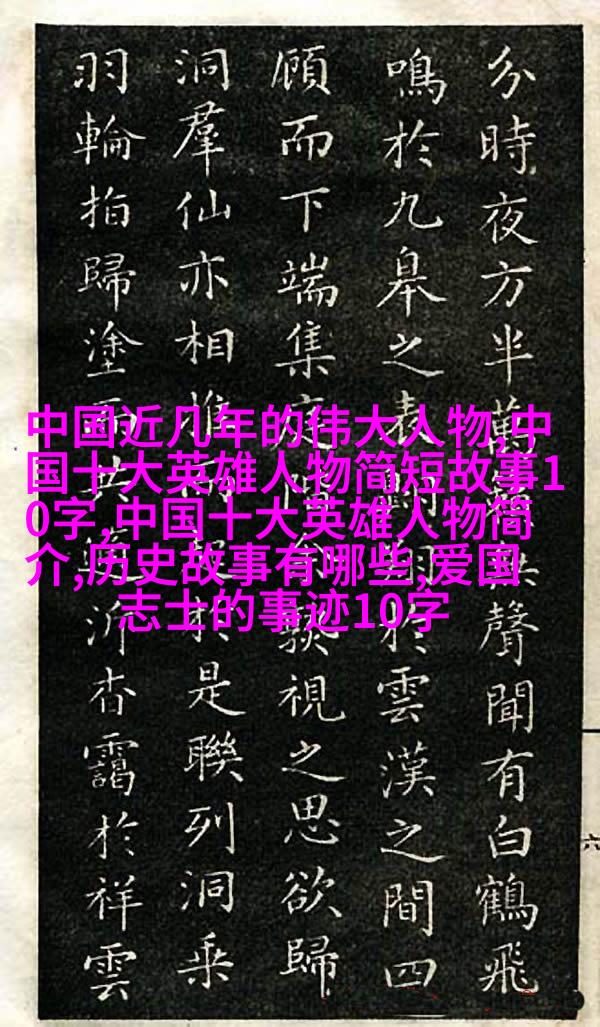 分時夜方半萬聲聞有白鶴飛
鳴於九皋之表於雲漢之間四
顧而下端集視之思欲歸
洞羣仙亦相推於是聯列洞乘
羽輪拍歸塗泝杳靄於祥雲
六
中国近几年的伟大人物,中
国十大英雄人物简短故事1
0字,中国十大英雄人物简
介,历史故事有哪些,爱国
志士的事迹10字